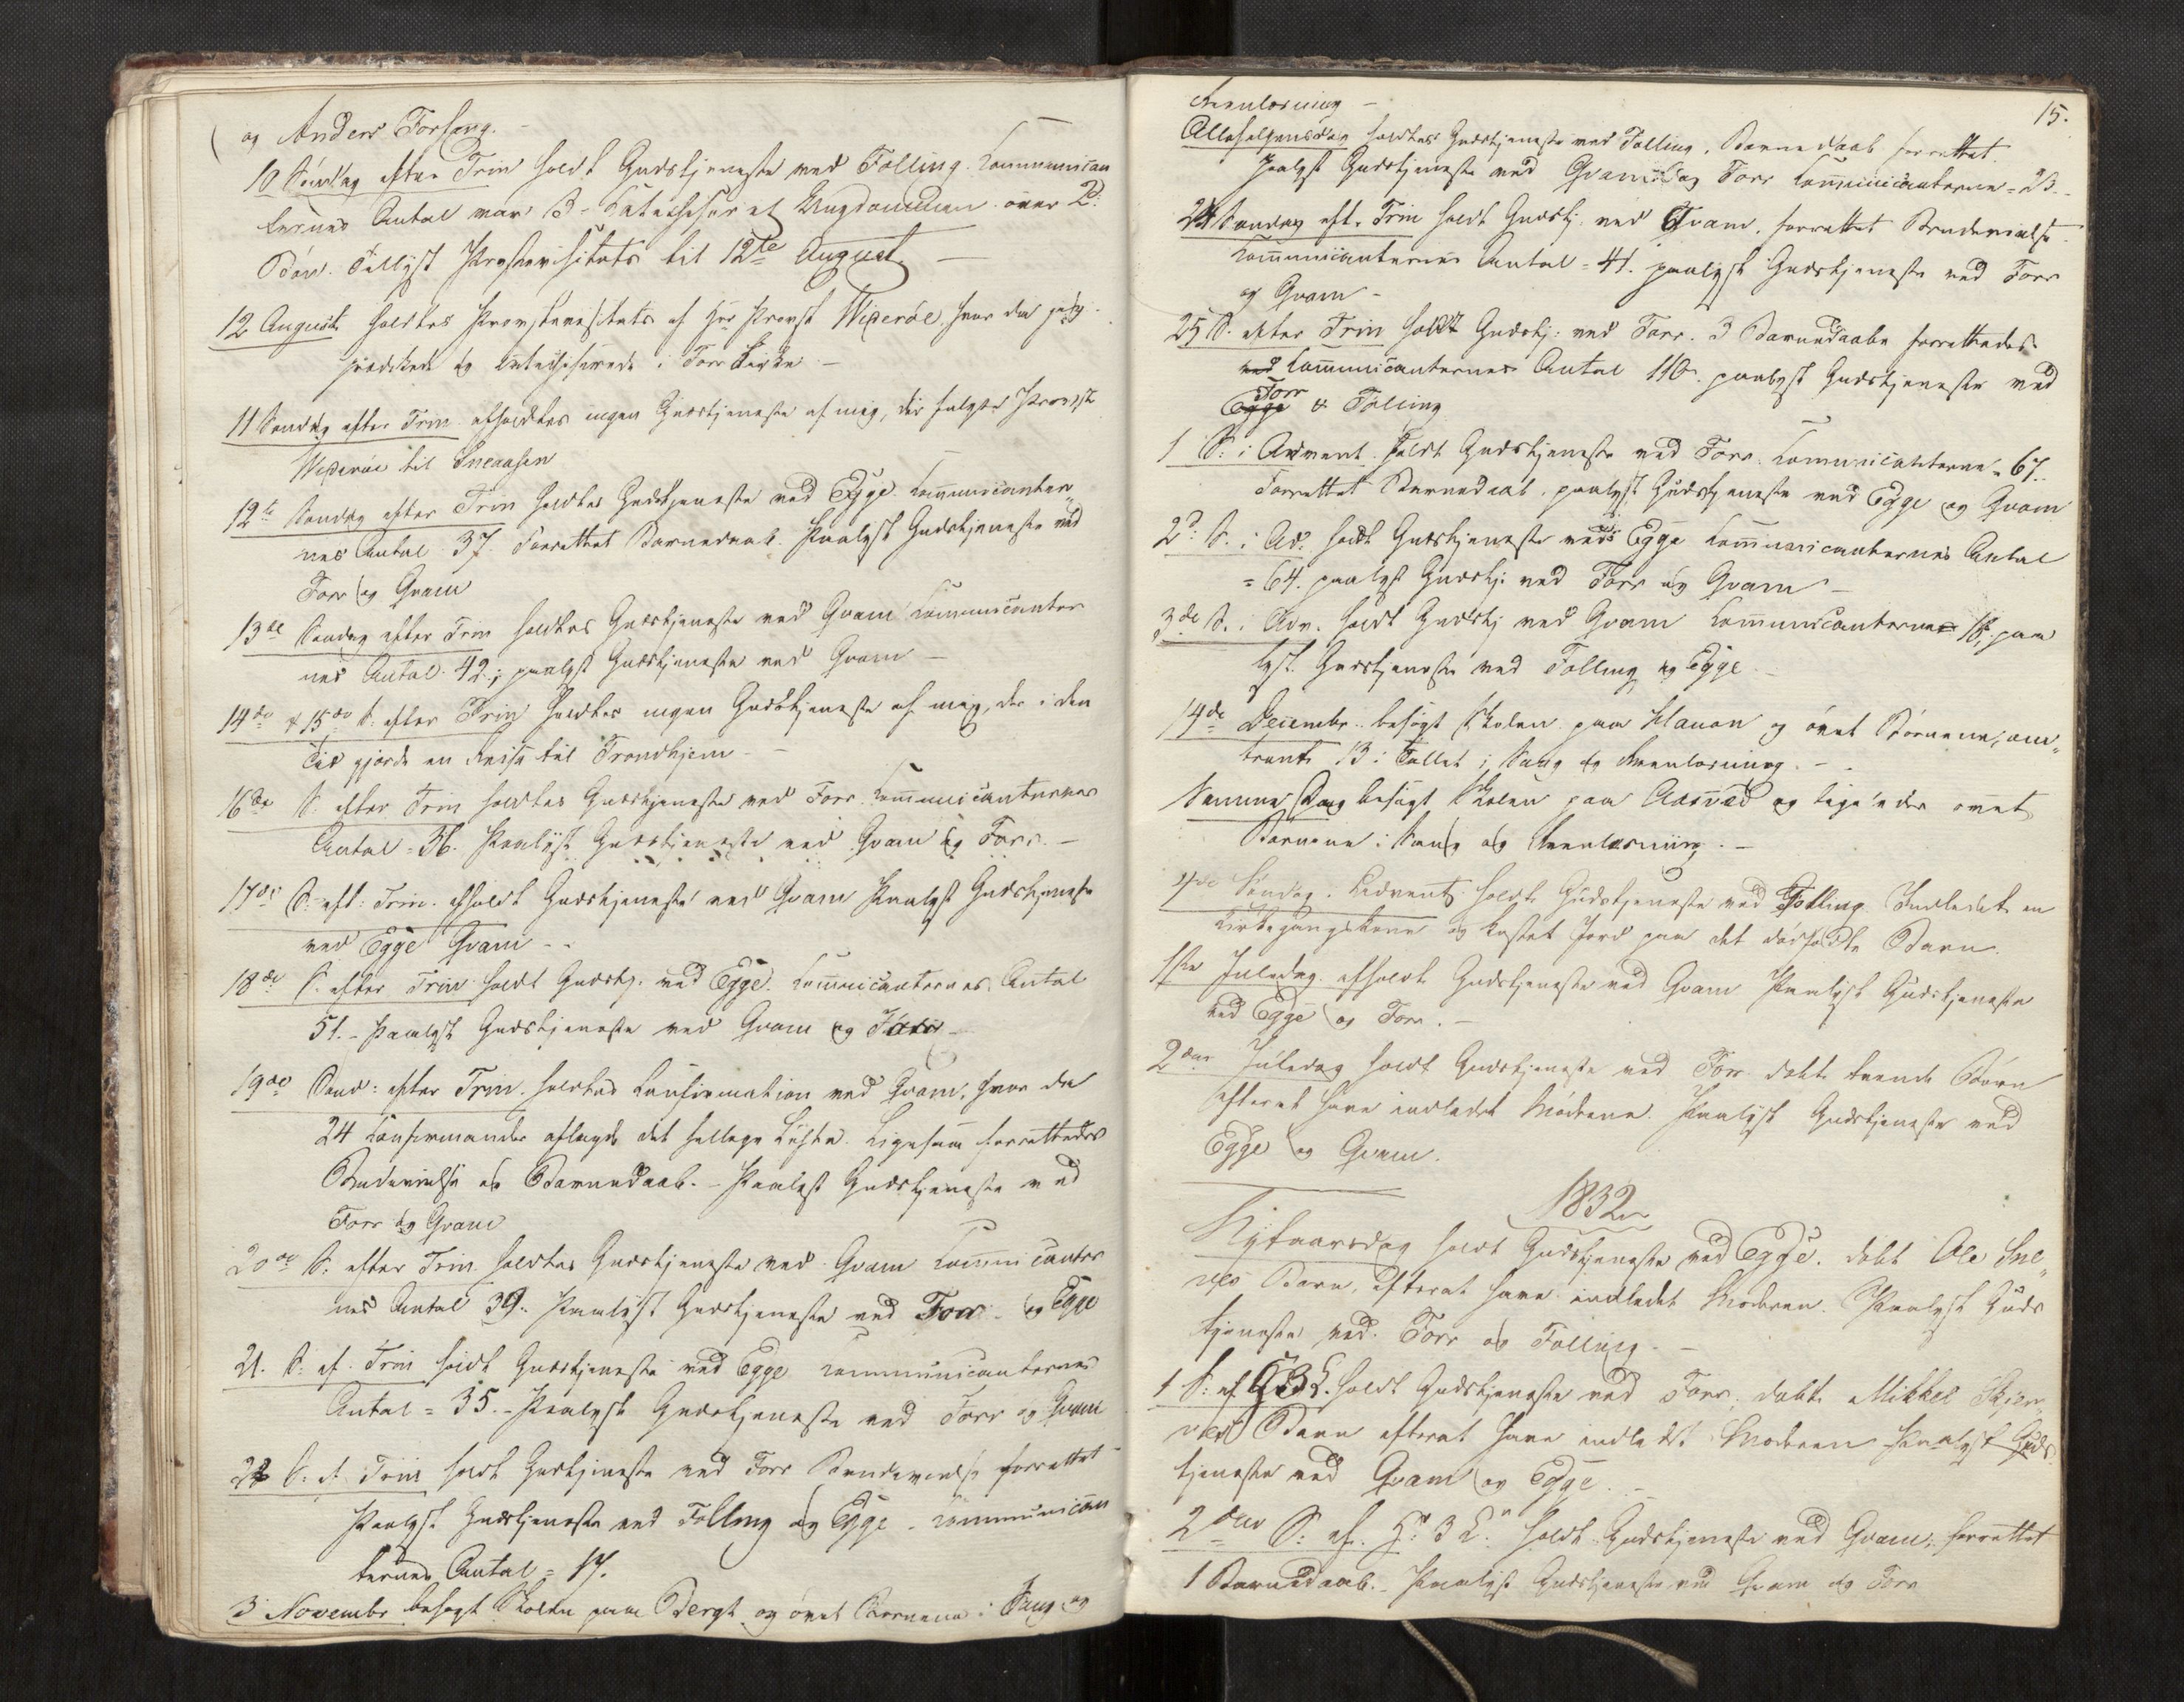 og Anders Forseng. -
10 Søndag efter Trin holdt Gudstjeneste ved Følling. Communican
ternes Antal var 13 - Catechiseret Ungdommen over 2.
Bøn. Tillyst Provstevisitats til 12te August. -
12 August holdtes Provstevisitats af Hr Provst Widerøe, hvor da jeg
prædikede og catechiserede i Forr Kirke -
11 Søndag efter Trin afholdtes ingen Gudstjeneste af mig, der fulgte Provst
Widerøe til Sneaasen
12te Søndag efter Trin holdtes Gudstjeneste ved Egge. Communicanter
nes Antal 37. Forrettet Barnedaab. Paalyst Gudstjeneste ved
Forr og Qvam
13de Søndag efter Trin holdtes Gudstjeneste ved Qvam Communicanter
nes Antal 42; paalyst Gudstjeneste ved Qvam -
14de & 15de S. efter Trin holdtes ingen Gudstjeneste af mig, der i den
Tid gjorde en Reise til Trondhjem -
16de S. efter Trin holdtes Gudstjeneste ved Forr. Communicanternes
Antal = 36. Paalyst Gudstjeneste ved Qvam og Forr. -
17de S. eft: Trin. afholdt Gudstjeneste ved Qvam Paalyst Gudstjeneste
ved Egge Qvam - -
18de S. efter Trin holdt Gudstj. ved Egge. Communicanternes Antal
51. - Paalyst Gudstjeneste ved Qvam og Forr -
19de Sønd: efter Trin. holdtes Confirmation ved Qvam, hvor da
24 Confirmander aflagde det hellige Løfte. Ligesom forrettedes
Brudevielse og Barnedaab. - Paalyst Gudstjeneste ved
Forr og Qvam
20de S: efter Trin. holdtes Gudstjeneste ved Qvam Communicanter
nes Antal 39. Paalyst Gudstjeneste ved Forr og Egge
21. S: ef. Trin holdt Gudstjeneste ved Egge Communicanternes
Antal = 35. - Paalyst Gudstjeneste ved Forr og Qvam
22 S: ef. Trin holdt Gudstjeneste ved Forr Brudevielse forrettet
Paalyst Gudstjeneste ved Følling og Egge - Communican
ternes Antal = 17.
3 Novembr besøgt Skolen paa Bergt og øvet Børnene i Sang og
15.
Reenlæsning -
Allehelgensdag holdtes Gudstjeneste ved Følling. Barnedaab forrettet.
Paalyst Gudstjeneste ved Qvam og Forr Communicanterne = 23. -
24 Søndag eft. Trin holdt Gudstj. ved Qvam. forrettet Brudevielse.
Communicanternes Antal = 41. paalyst Gudstjeneste ved Forr
og Qvam -
25 S. efter Trin holdt Gudstj: ved Forr. 3 Barnedaabe forrettedes
ved Communicanternes Antal 110. paalyst Gudstjeneste ved
Forr
Egge & Følling
1 S: i Advent. holdt Gudstjeneste ved Forr. Communicanterne = 67.
Forrettet Barnedaab. paalyst Gudstjeneste ved Egge og Qvam
2d. S. i Ad. holdt Gudstjeneste ved Egge Communicanternes Antal
= 64. paalyst Gudstj: ved Forr og Qvam -
3de S. i Adv. holdt Gudstj ved Qvam Communicanterne 16. paa
lyst. Gudstjeneste ved Følling og Egge -
14de Decembr. besøgt Skolen paa Klæuan og øvet Børnene, om„
trent 13 i Tallet i Sang og Reenlæsning. -
Samme Dag besøgt Skolen paa Aasved og ligesaa der øvet
Børnene i Sang og Reenlæsning. -
4de Søndag i Advent. holdt Gudstjeneste ved Følling Indledet en
Kirkegangskone og kastet Jord paa det Barn.
1ste Juledag. afholdt Gudstjeneste ved Qvam Paalyst Gudstjeneste
ved Egge og Forr. -
2den Juledag holdt Gudstjeneste ved Forr døbt trende Børn
efterat have indledet Mødrene. Paalyst Gudstjeneste ved
Egge og Qvam.
1832
Nytaarsdag holdt Gudstjeneste ved Egge. døbt Ole Sne„
ves Barn, efterat have indledet Moderen. Paalyst Guds
tjeneste ved. Forr og Følling. -
1 S: ef H 3 K. holdt Gudstjeneste ved Forr, døbt Mikkel Skjer„
ves Barn efterat have indledet Moderen Paalyst Guds
tjeneste ved Qvam og Egge. -
2den S. ef. H. 3 K. holdt Gudstjeneste ved Qvam; forrettet
1 Barnedaab. - Paalyst Gudstjeneste ved Qvam og Forr